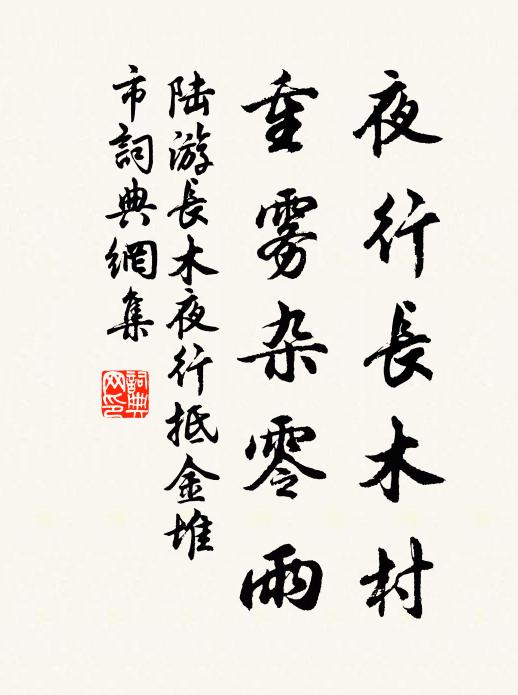 夜行長木村
重雾杂零雨
陆游長木夜行抵金堆
市詞典網集
詞典网印